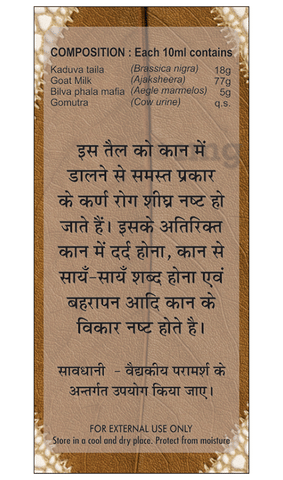 COMPOSITION : Each 10ml contains
Kaduva taila (Brassica nigra) 18g
Goat Milk (Ajaksheera) 77g
Bilva phala mafia (Aegle marmelos) 5g
Gomutra (Cow urine) q.s.
इस तैल को कान में
डालने से समस्त प्रकार
के कर्ण रोग शीघ्र नष्ट हो
जाते हैं। इसके अतिरिक्त
कान में दर्द होना, कान से
सायँ-सायँ शब्द होना एवं
बहरापन आदि कान के
विकार नष्ट होते है।
सावधानी - वैद्यकीय परामर्श के
अन्तर्गत उपयोग किया जाए।
FOR EXTERNAL USE ONLY
Store in a cool and dry place. Protect from moisture